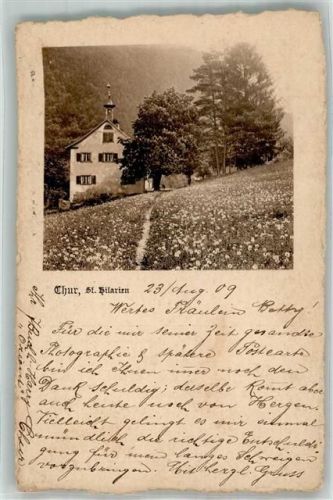 Chur, St. Hilarien
23/Aug. 09
Wertes Fräulein Betty!
Für die mir seiner Zeit gesandte
Photographie & spätere Postcarte
bin ich Ihnen immer noch den
Dank schuldig; derselbe komt aber
auch heute noch von Herzen.
Vielleicht gelingt es mir einmal
mündlich die richtige Entschuldi-
gung für mein langes Schweigen
vorzubringen. Mit herzl. Gruss
Chur